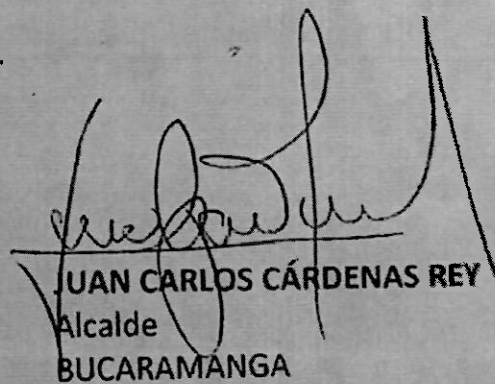 JUAN CARLOS CÁRDENAS REY
Alcalde
BUCARAMANGA